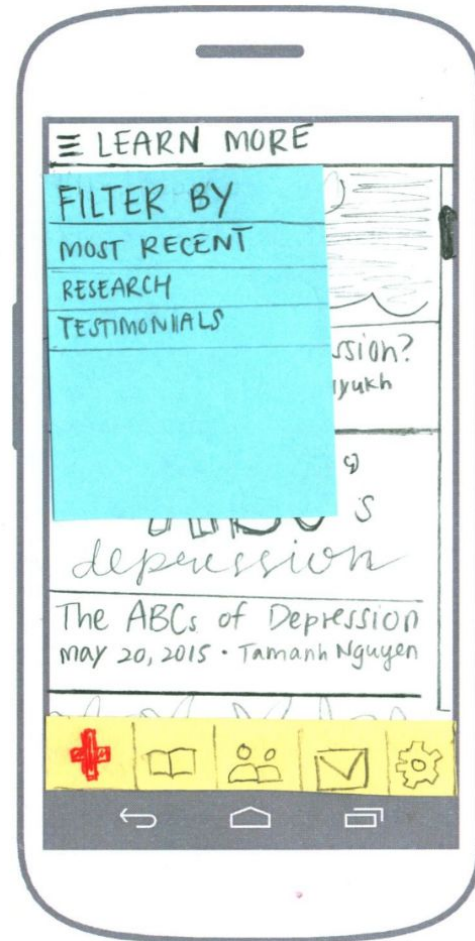 LEARN MORE
FILTER BY
MOST RECENT
RESEARCH
TESTIMONIALS
ssion?
iyukh
s
depression
The ABCs of Depression
may 20, 2015 • Tamanh Nguyen